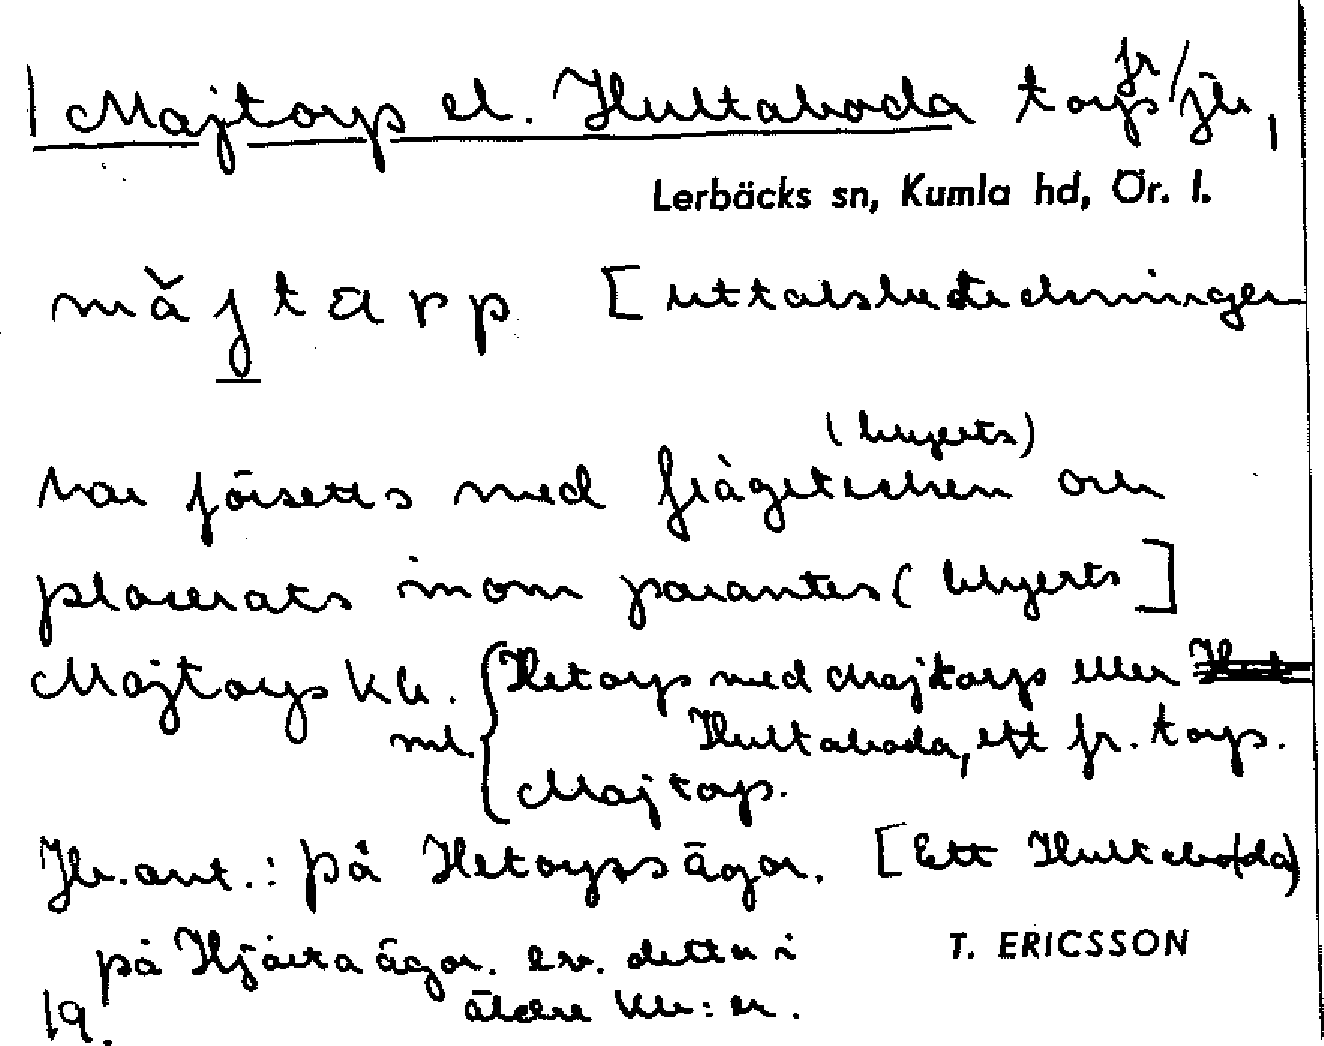 Majtorp el. Hultaboda torp fr/Jb,
Lerbäcks sn, Kumla hd, Ör. l.
măjtarp [uttalsbeteckningen
har försetts med frågetecken (blyerts) och
placerats inom parantes (blyerts]
Majtorp kb. { Hetorp med Majtorp eller
ml. Hultaboda, ett fr. torp.
Majtorp.
Jb.ant.: på Hetorps ägor. [Ett Hultabo(da)
på Hjärta ägor. ev. detta i
äldre kb:er.
T. ERICSSON
19.